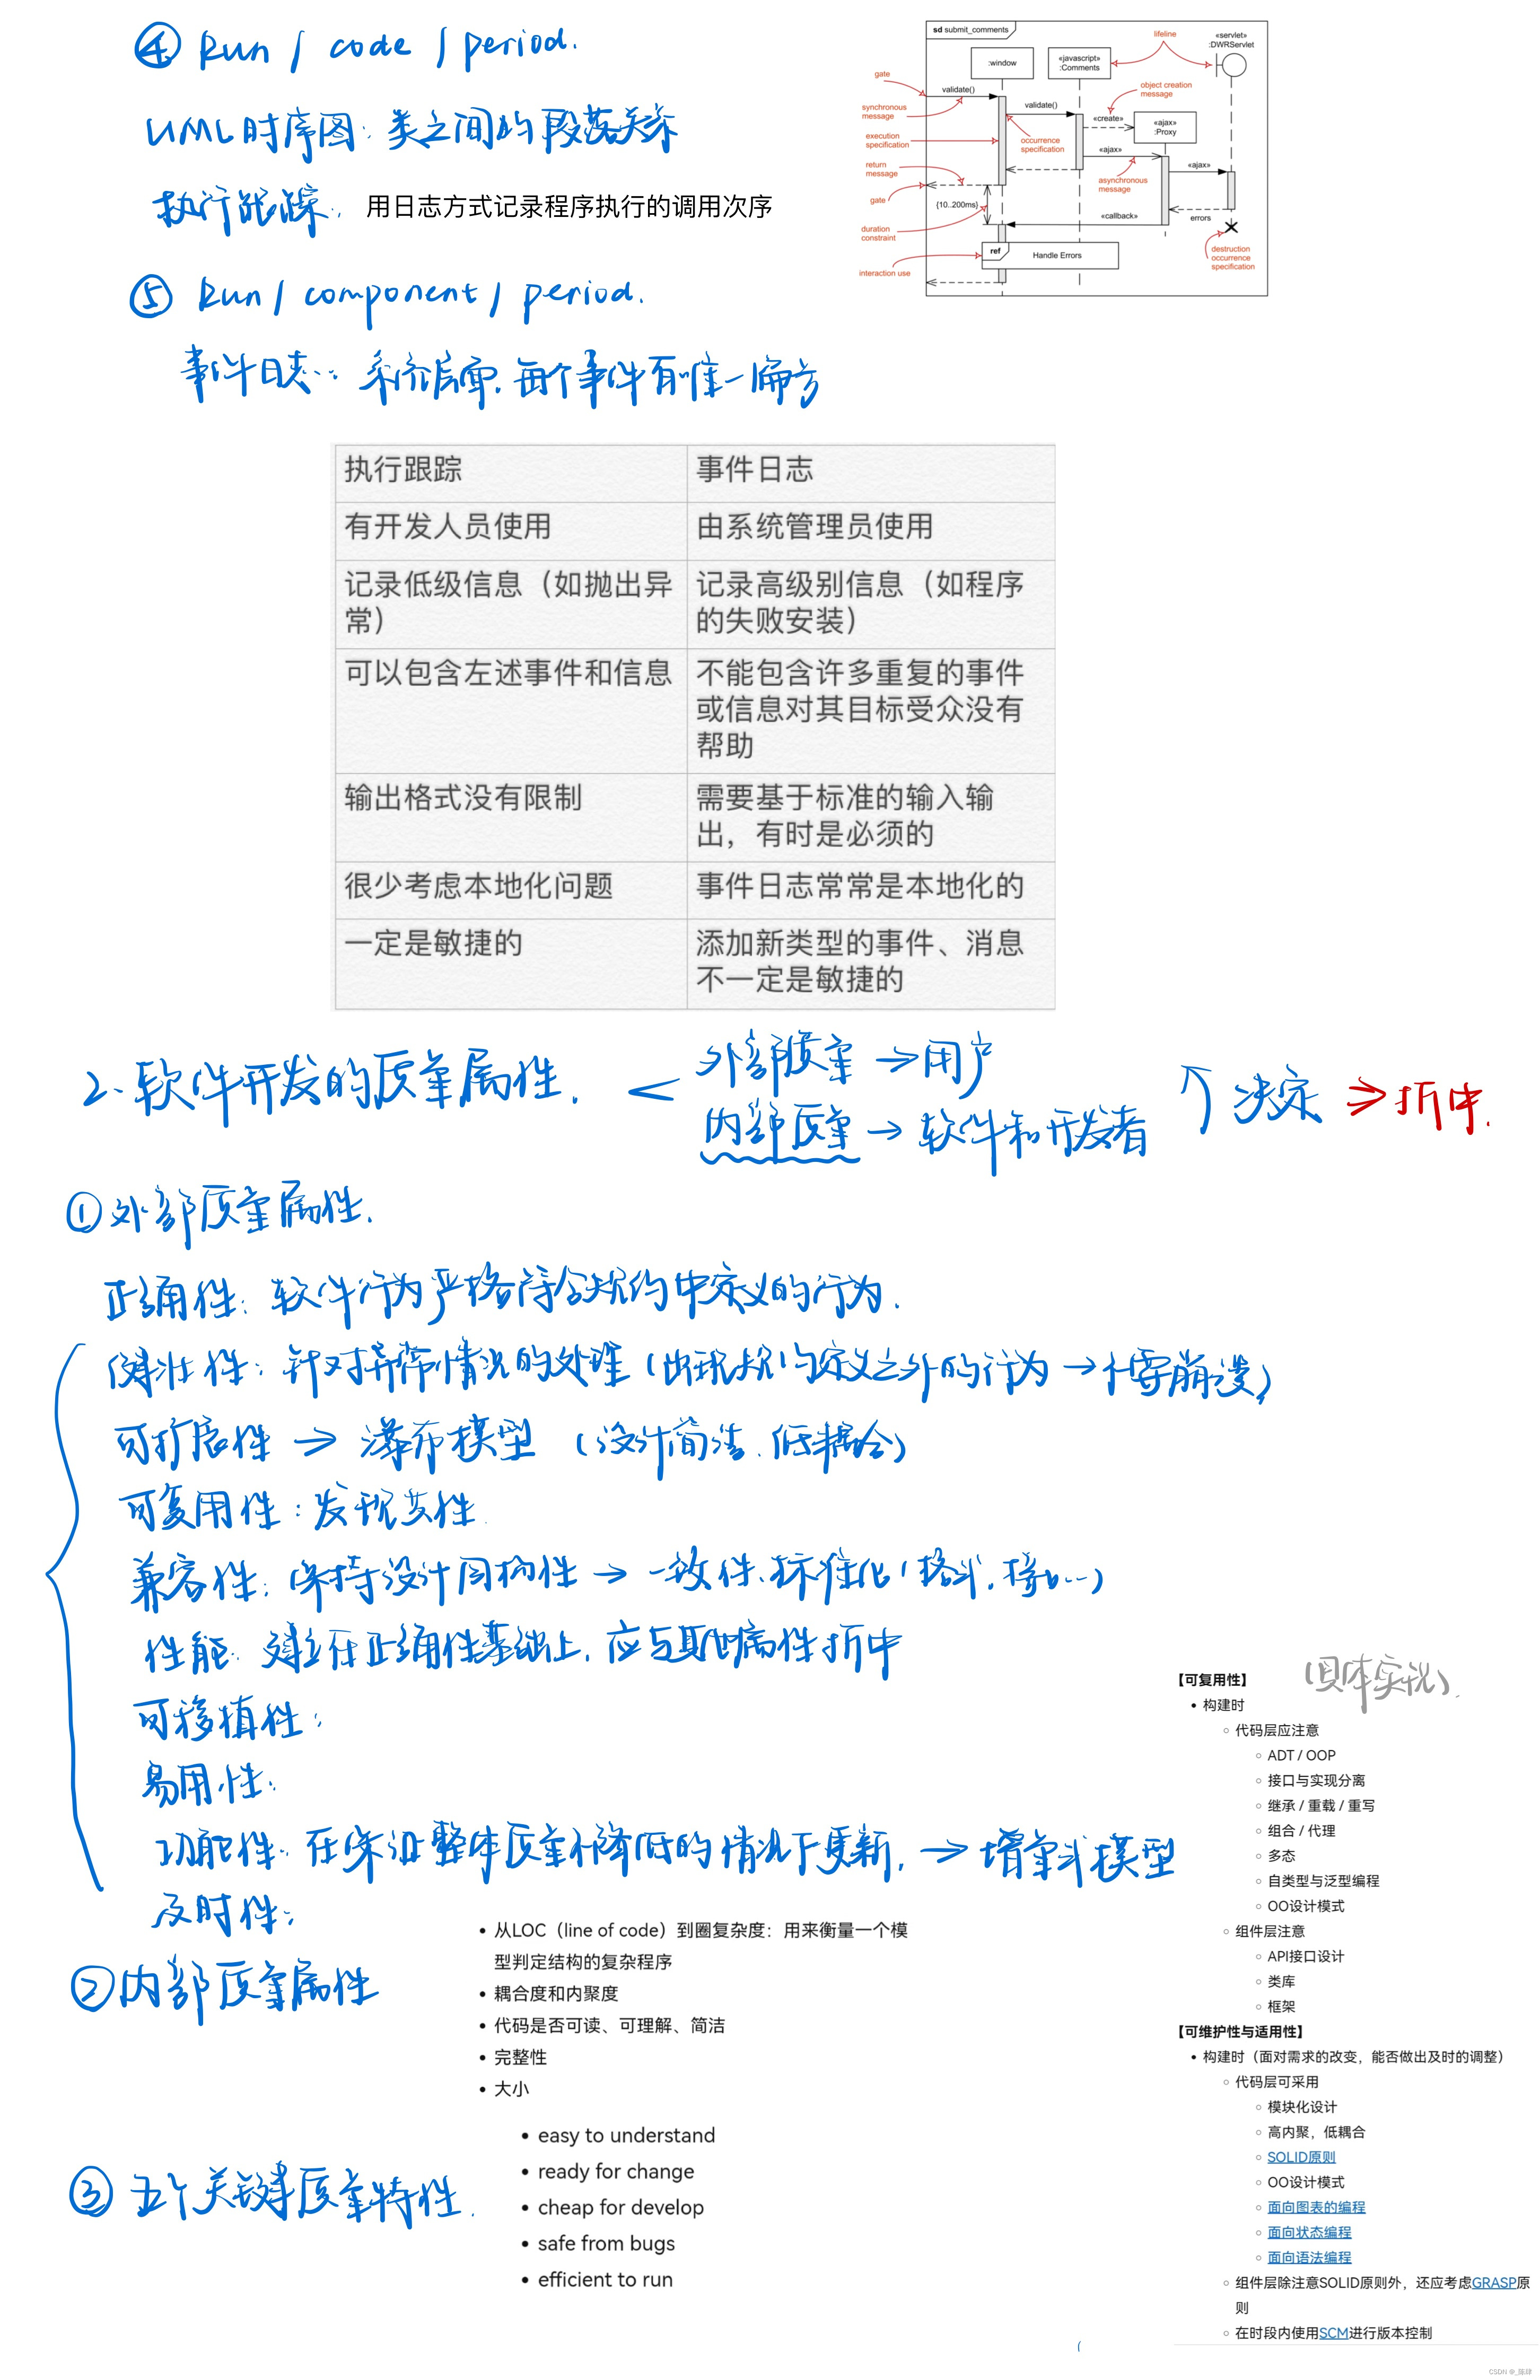 ④ Run / code / period.
UML时序图：类之间的
执行跟踪： 用日志方式记录程序执行的调用次序
sd submit_comments
lifeline
«servlet»
:DWRServlet
:window
«javascript»
:Comments
gate
validate()
object creation
message
synchronous
message
validate()
«create»
«ajax»
:Proxy
execution
specification
occurrence
specification
«ajax»
«ajax»
return
message
asynchronous
message
gate
{10..200ms}
«callback»
errors
duration
constraint
ref
Handle Errors
destruction
occurrence
specification
interaction use
⑤ Run / component / period.
事件日志： 系统层面，每个事件有唯一编号
执行跟踪 事件日志
有开发人员使用 由系统管理员使用
记录低级信息（如抛出异 记录高级别信息（如程序
常） 的失败安装）
可以包含左述事件和信息 不能包含许多重复的事件
或信息对其目标受众没有
帮助
输出格式没有限制 需要基于标准的输入输
出，有时是必须的
很少考虑本地化问题 事件日志常常是本地化的
一定是敏捷的 添加新类型的事件、消息
不一定是敏捷的
2. 软件开发的质量属性.
外部质量 → 用户
内部质量 → 软件和开发者
↑ 决定 ⇒ 折中.
① 外部质量属性.
正确性：软件行为严格符合规约中定义的行为.
健壮性：针对异常情况的处理（出现规约定义之外的行为 → 不要崩溃）
可扩展性 → 瀑布模型（设计简洁、低耦合）
可复用性：发现共性
兼容性：保持设计同构性 → 一致性、标准化（格式，接口…）
性能：建立在正确性基础上，应与其他属性折中
可移植性：
易用性：
功能性：在保证整体质量不降低的情况下更新，→ 增量式模型
及时性：
② 内部质量属性
• 从LOC（line of code）到圈复杂度：用来衡量一个模
型判定结构的复杂程序
• 耦合度和内聚度
• 代码是否可读、可理解、简洁
• 完整性
• 大小
③ 五个关键质量特性.
• easy to understand
• ready for change
• cheap for develop
• safe from bugs
• efficient to run
【可复用性】 （具体实现）.
• 构建时
◦ 代码层应注意
◦ ADT / OOP
◦ 接口与实现分离
◦ 继承 / 重载 / 重写
◦ 组合 / 代理
◦ 多态
◦ 自类型与泛型编程
◦ OO设计模式
◦ 组件层注意
◦ API接口设计
◦ 类库
◦ 框架
【可维护性与适用性】
• 构建时（面对需求的改变，能否做出及时的调整）
◦ 代码层可采用
◦ 模块化设计
◦ 高内聚，低耦合
◦ SOLID原则
◦ OO设计模式
◦ 面向图表的编程
◦ 面向状态编程
◦ 面向语法编程
◦ 组件层除注意SOLID原则外，还应考虑GRASP原
则
◦ 在时段内使用SCM进行版本控制